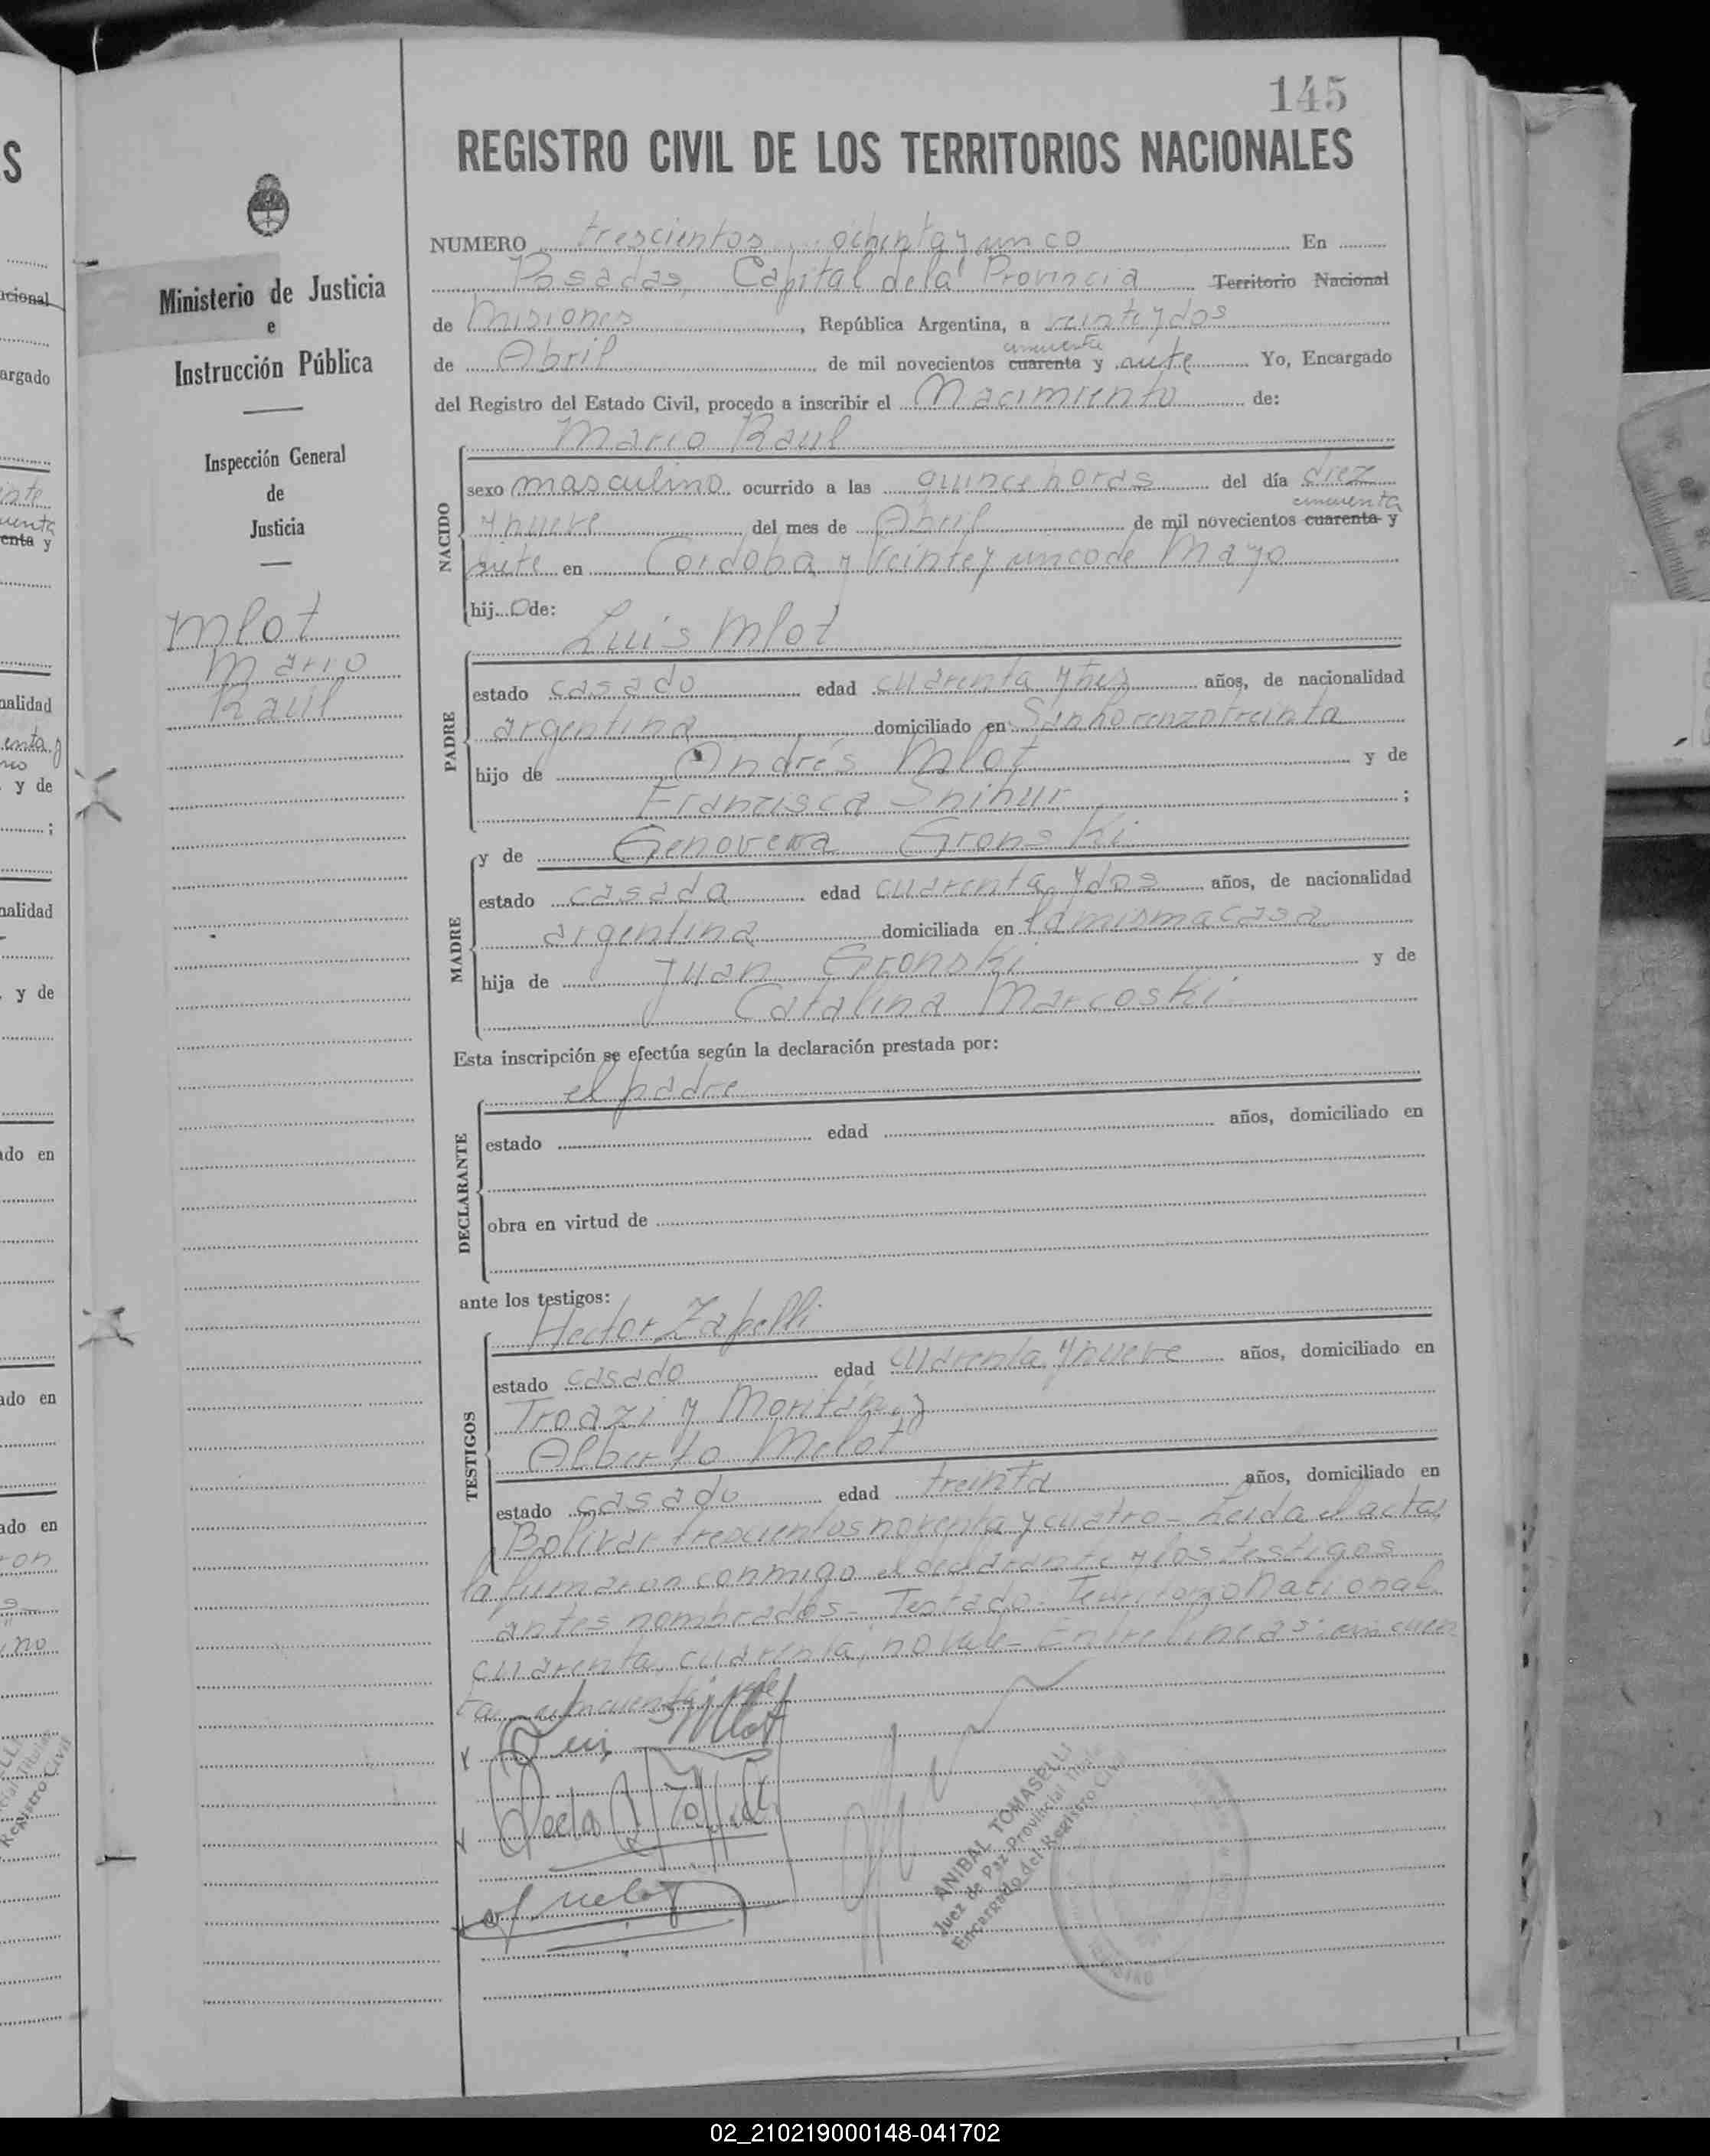 145
REGISTRO CIVIL DE LOS TERRITORIOS NACIONALES
Ministerio de Justicia
e
Instrucción Pública
Inspección General
de
Justicia
Mlot
Mario
Raúl
NUMERO trescientos ochenta y un co En
Posadas, Capital de la Provincia Territorio Nacional
de Misiones, República Argentina, a veinte y dos
cincuenta
de Abril de mil novecientos cuarenta y siete Yo, Encargado
del Registro del Estado Civil, procedo a inscribir el Nacimiento de:
Mario Raul
NACIDO
sexo masculino ocurrido a las quince horas del día diez
cincuenta
y nueve del mes de Abril de mil novecientos cuarenta y
siete en Cordoba y Veinte y unco de Mayo
hijo de:
Luis Mlot
PADRE
estado casado edad cuarenta y tres años, de nacionalidad
argentina domiciliado en San Lorenzo treinta
hijo de Andrés Mlot y de
Francisca Snihur ;
MADRE
y de Genoveva Gronski
estado casada edad cuarenta y dos años, de nacionalidad
argentina domiciliada en la misma casa
hija de Juan Gronski y de
Catalina Marcoski
Esta inscripción se efectúa según la declaración prestada por:
el padre
DECLARANTE
estado edad años, domiciliado en
obra en virtud de
ante los testigos:
TESTIGOS
Hector Zapelli
estado casado edad cuarenta y nueve años, domiciliado en
Troazi y Moritán, y
Alberto Melot
estado casado edad treinta años, domiciliado en
Bolivar trescientos noventa y cuatro - Leida el acta,
la firmaron conmigo el declarante y los testigos
antes nombrados - Testado - Territorio Nacional
cuarenta, cuarenta, no vale - Entre lineas: cincuen
ta cincuenta vale
Luis Mlot
ANIBAL TOMASELLI
Juez de Paz Provincial Titular
Encargado del Registro Civil
02_210219000148-041702